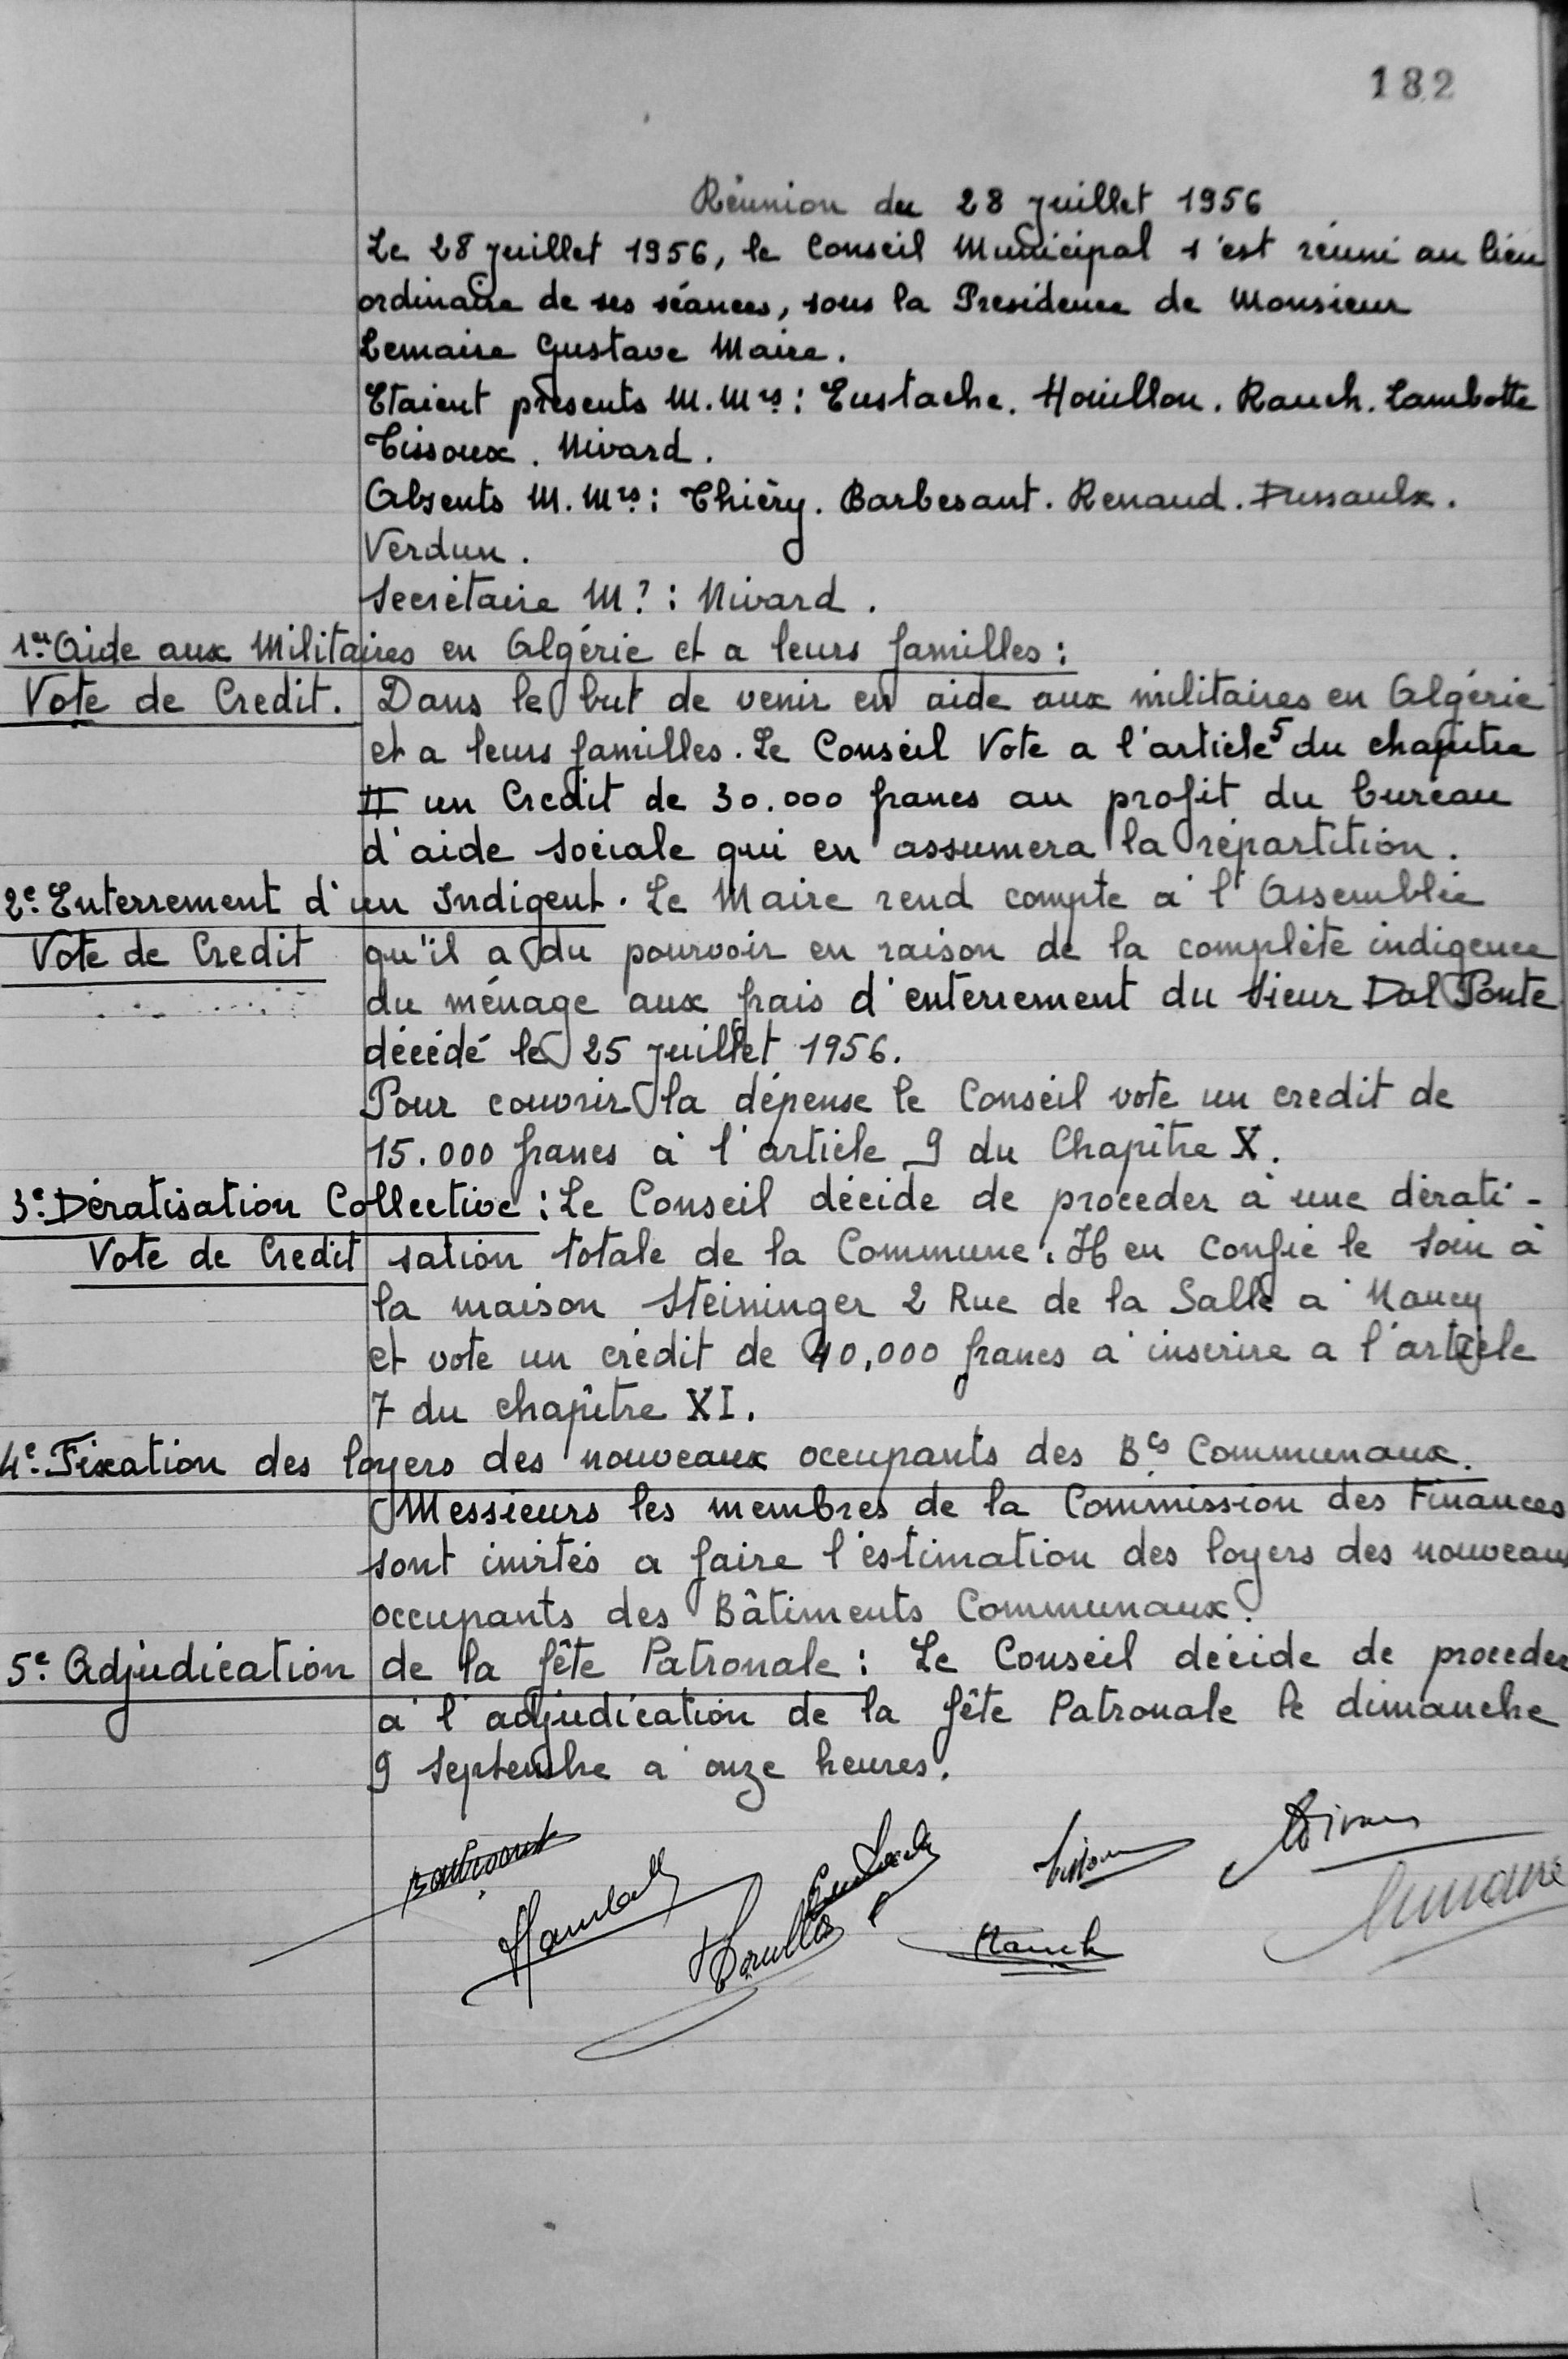 182
Réunion du 28 Juillet 1956
Le 28 Juillet 1956, le Conseil Municipal s'est réuni au lieu
ordinaire de ses séances, sous la Presidence de Monsieur
Lemaire Gustave Maire.
Etaient présents M.Mrs : Eustache. Houillon. Rauch. Lambotte
Tissoux. Nivard.
Absents M.Mrs : Thiéry. Barbesant. Renaud. Dussaulx.
Verdun.
Secrétaire Mr : Nivard.
1er Aide aux Militaires en Algérie et a leurs familles :
Vote de Credit. Dans le but de venir en aide aux militaires en Algérie
et a leurs familles. Le Conseil Vote a l'article 5 du chapitre
II un Credit de 30.000 francs au profit du bureau
d'aide sociale qui en assumera la répartition.
2e Enterrement d'un Indigent. Le Maire rend compte à l'Assemblée
Vote de Credit qu'il a du pourvoir en raison de la complète indigence
du ménage aux frais d'enterrement du Sieur Dal Ponte
décédé le 25 Juillet 1956.
Pour couvrir la dépense le Conseil vote un credit de
15.000 francs à l'article 9 du Chapître X.
3e Dératisation Collective : Le Conseil décide de proceder à une dérati-
Vote de Credit sation totale de la Commune. Il en confie le soin à
la maison Steininger 2 Rue de la Salle à Nancy
et vote un crédit de 40,000 francs à inscrire a l'article
7 du chapître XI.
4e Fixation des loyers des nouveaux occupants des Bts Communaux.
Messieurs les membres de la Commission des Finances
sont invités a faire l'estimation des loyers des nouveaux
occupants des Bâtiments Communaux.
5e Adjudication de la fête Patronale : Le Conseil décide de proceder
à l'adjudication de la fête Patronale le dimanche
9 Septembre à onze heures.
Rauch
Lemaire